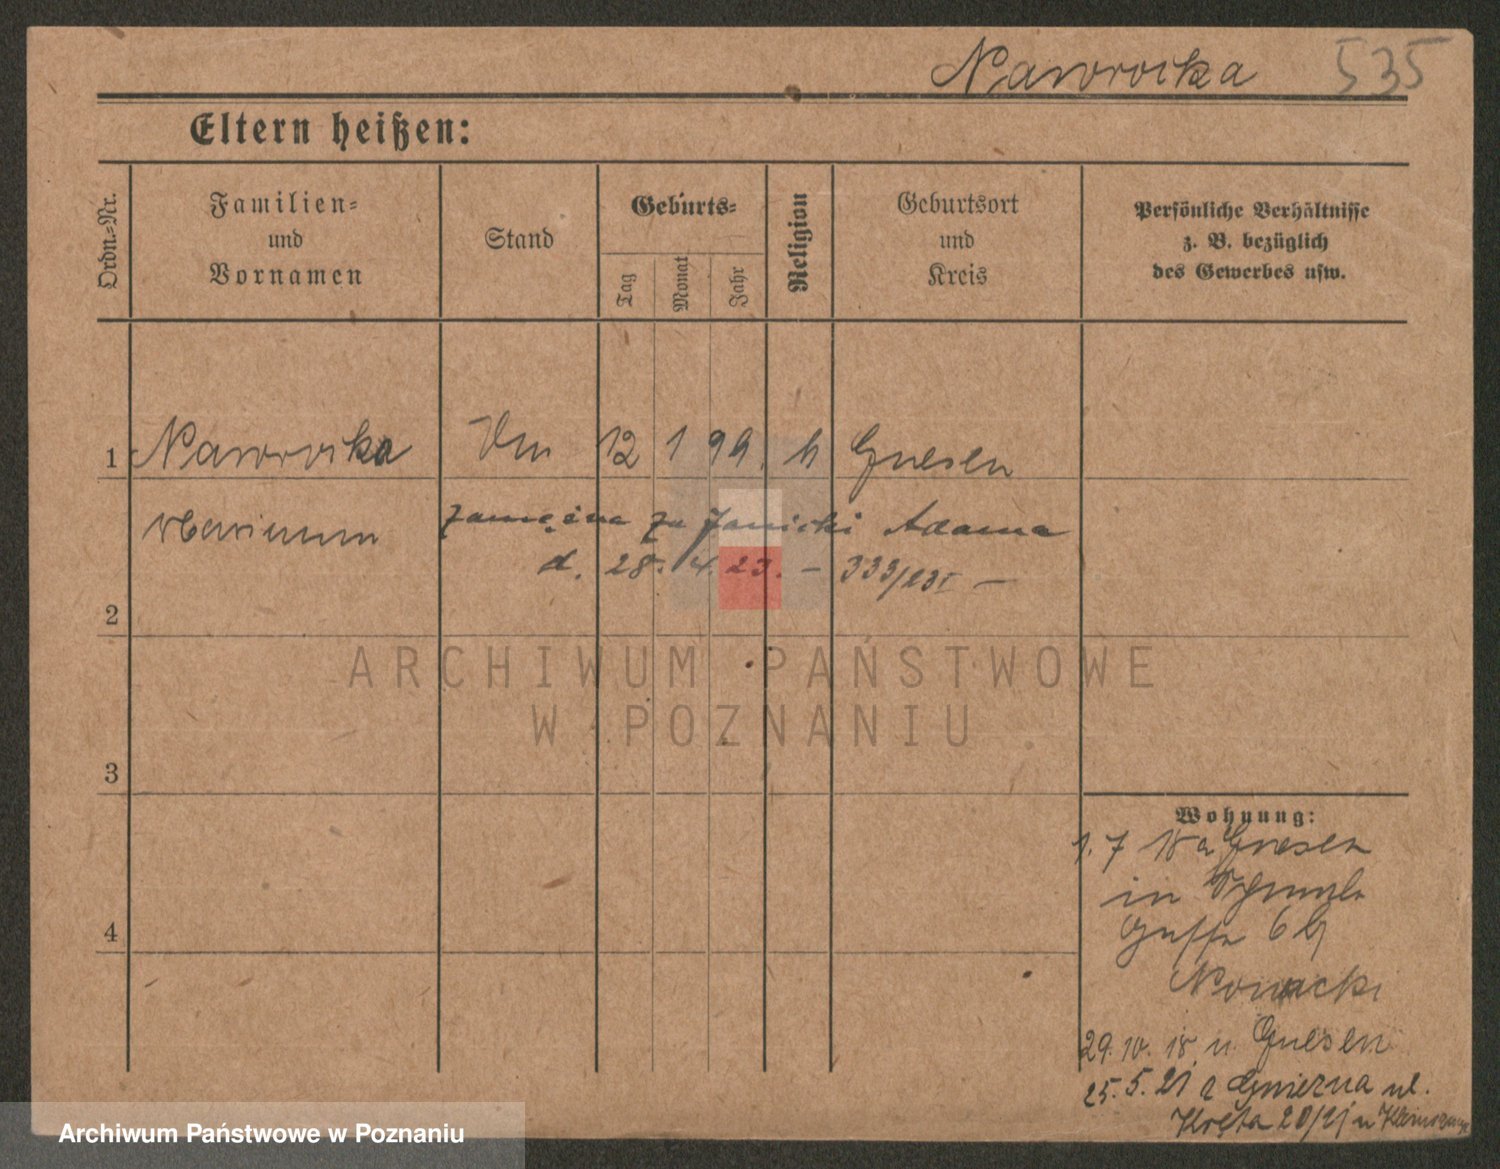 Nawrocka 535
Eltern heißen:
Ordn.-Nr.
Familien-
und
Vornamen
Stand
Geburts-
Tag
Monat
Jahr
Religion
Geburtsort
und
Kreis
Persönliche Verhältnisse
z. B. bezüglich
des Gewerbes usw.
1 Nawrocka 12 1 99. k Gnesen
zamężna za Janicki Adama
d. 28. 4. 23. – 333/23I –
2
ARCHIWUM PAŃSTWOWE
W POZNANIU
3
4
Wohnung:
1. 7 18 a Gnesen
in
6
Nowacki
29. 10. 18 n. Gnesen
25. 5. 21 z Gniezna ul.
Kręta 20/21 u
Archiwum Państwowe w Poznaniu